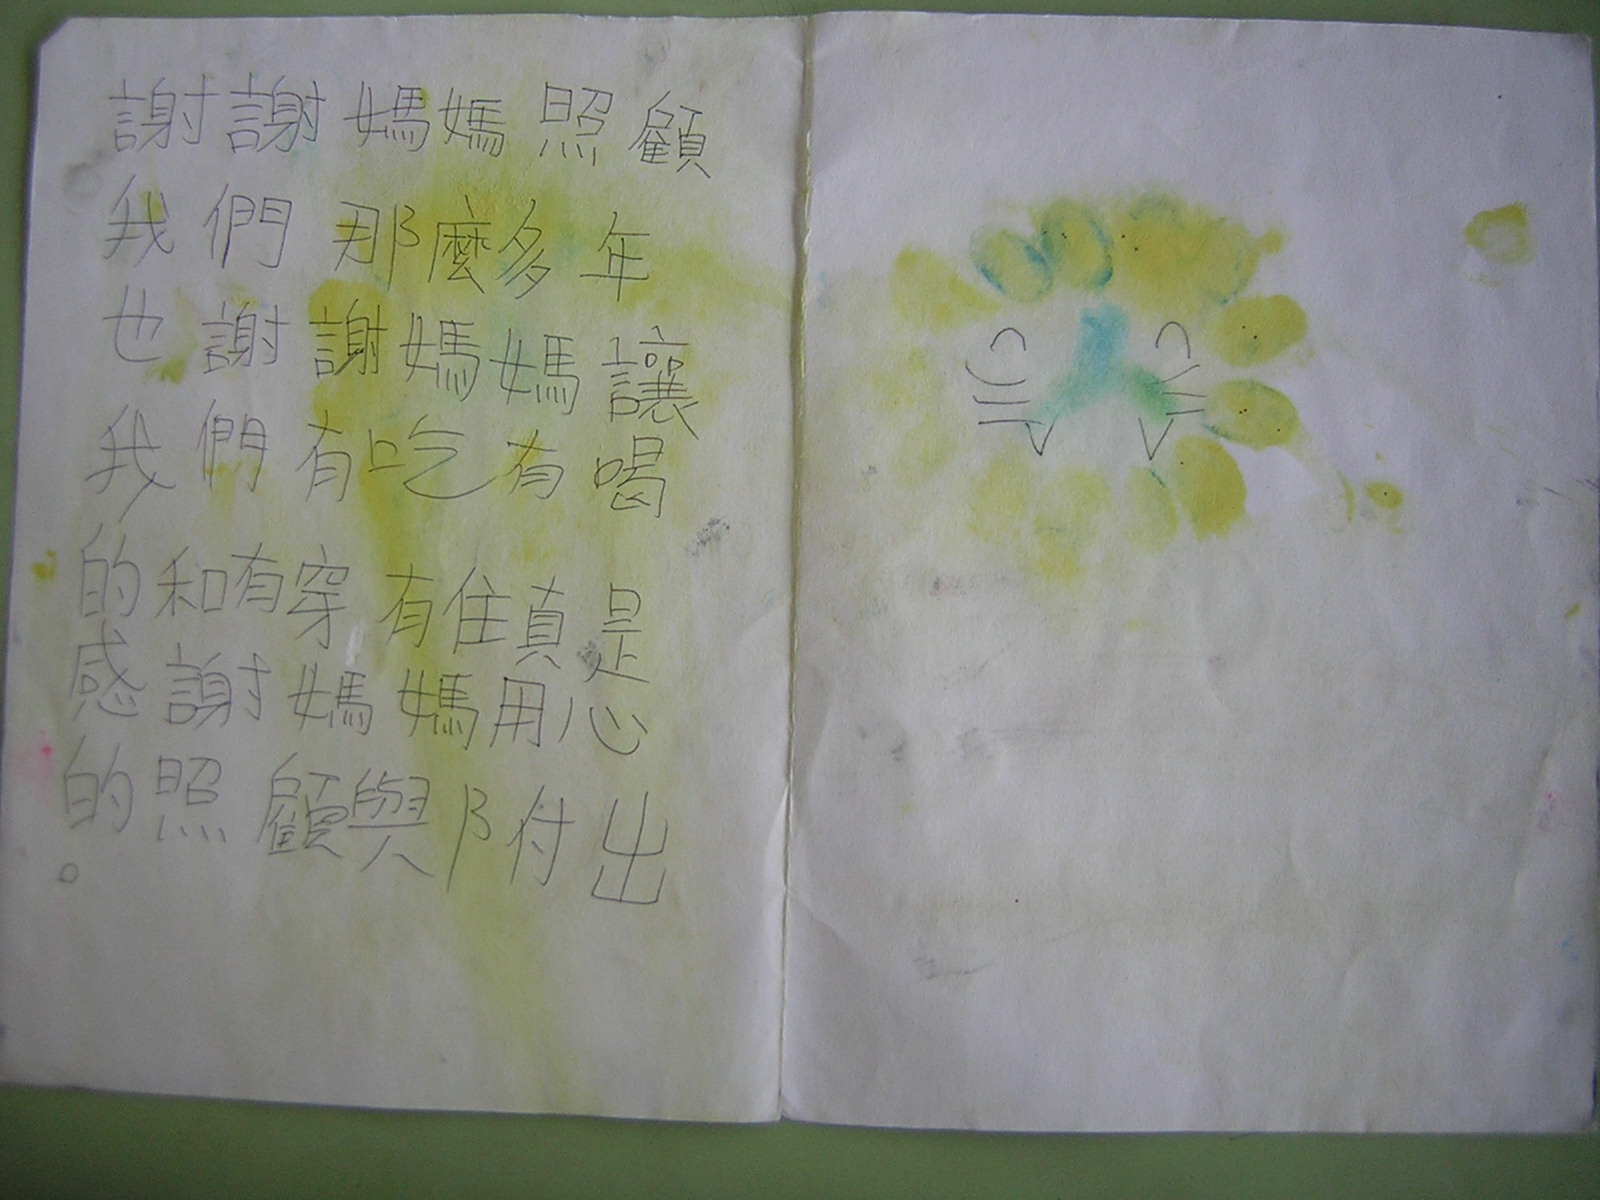 謝謝媽媽照顧
我們那麼多年
也謝謝媽媽讓
我們有吃有喝
的和有穿有住真是
感謝媽媽用心
的照顧與附出
。